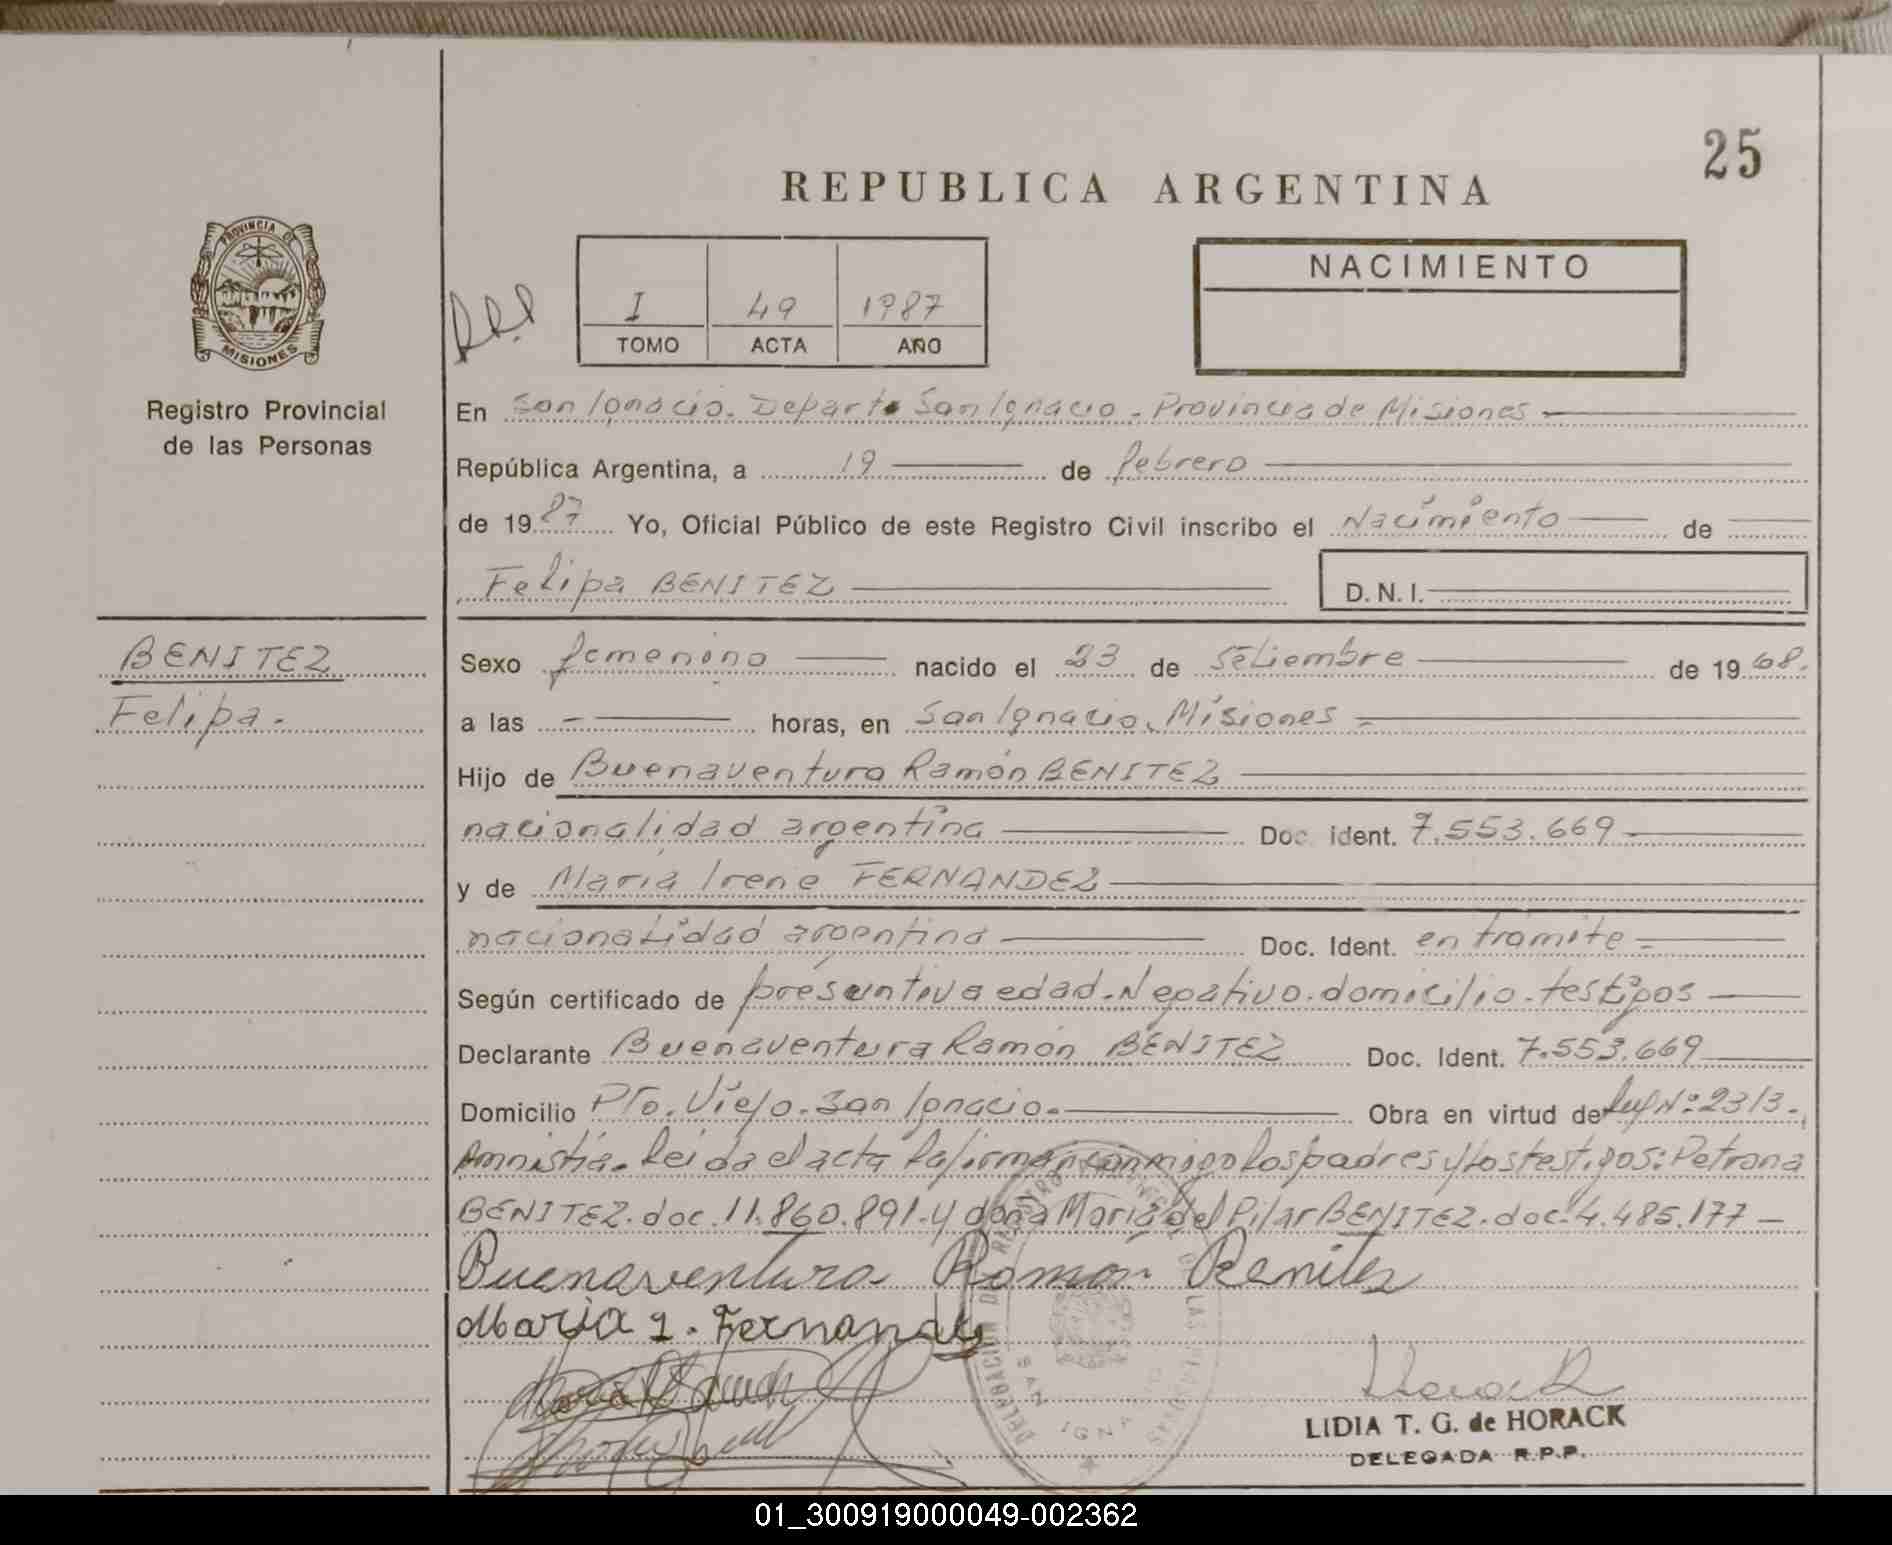 25
REPUBLICA ARGENTINA
PROVINCIA DE
MISIONES
Registro Provincial
de las Personas
I 49 1987
TOMO ACTA AÑO
NACIMIENTO
En San Ignacio. Departo San Ignacio. Provincia de Misiones
República Argentina, a 19 de febrero
de 1987 Yo, Oficial Público de este Registro Civil inscribo el Nacimiento de
Felipa BENITEZ D.N.I.
BENITEZ
Felipa.
Sexo femenino nacido el 23 de setiembre de 1968.
a las - horas, en San Ignacio. Misiones
Hijo de Buenaventura Ramón BENITEZ
nacionalidad argentina Doc. ident. 7.553.669
y de María Irene FERNANDEZ
nacionalidad argentina Doc. Ident. en trámite
Según certificado de presuntiva edad. Negativo. domicilio. testigos
Declarante Buenaventura Ramón BENITEZ Doc. Ident. 7.553.669
Domicilio Pto. Viejo. San Ignacio. Obra en virtud de Ley Nº 2313.
Amnistía. Leída el acta la firman conmigo los padres y los testigos: Petrona
BENITEZ. doc. 11.860.891. y doña María del Pilar BENITEZ. doc. 4.485.177
Buenaventura Ramón Benitez
Maria I. Fernandez
DELEGACION DEL REGISTRO PROVINCIAL DE LAS PERSONAS
SAN IGNACIO
Horack
LIDIA T. G. de HORACK
DELEGADA R.P.P.
01_300919000049-002362